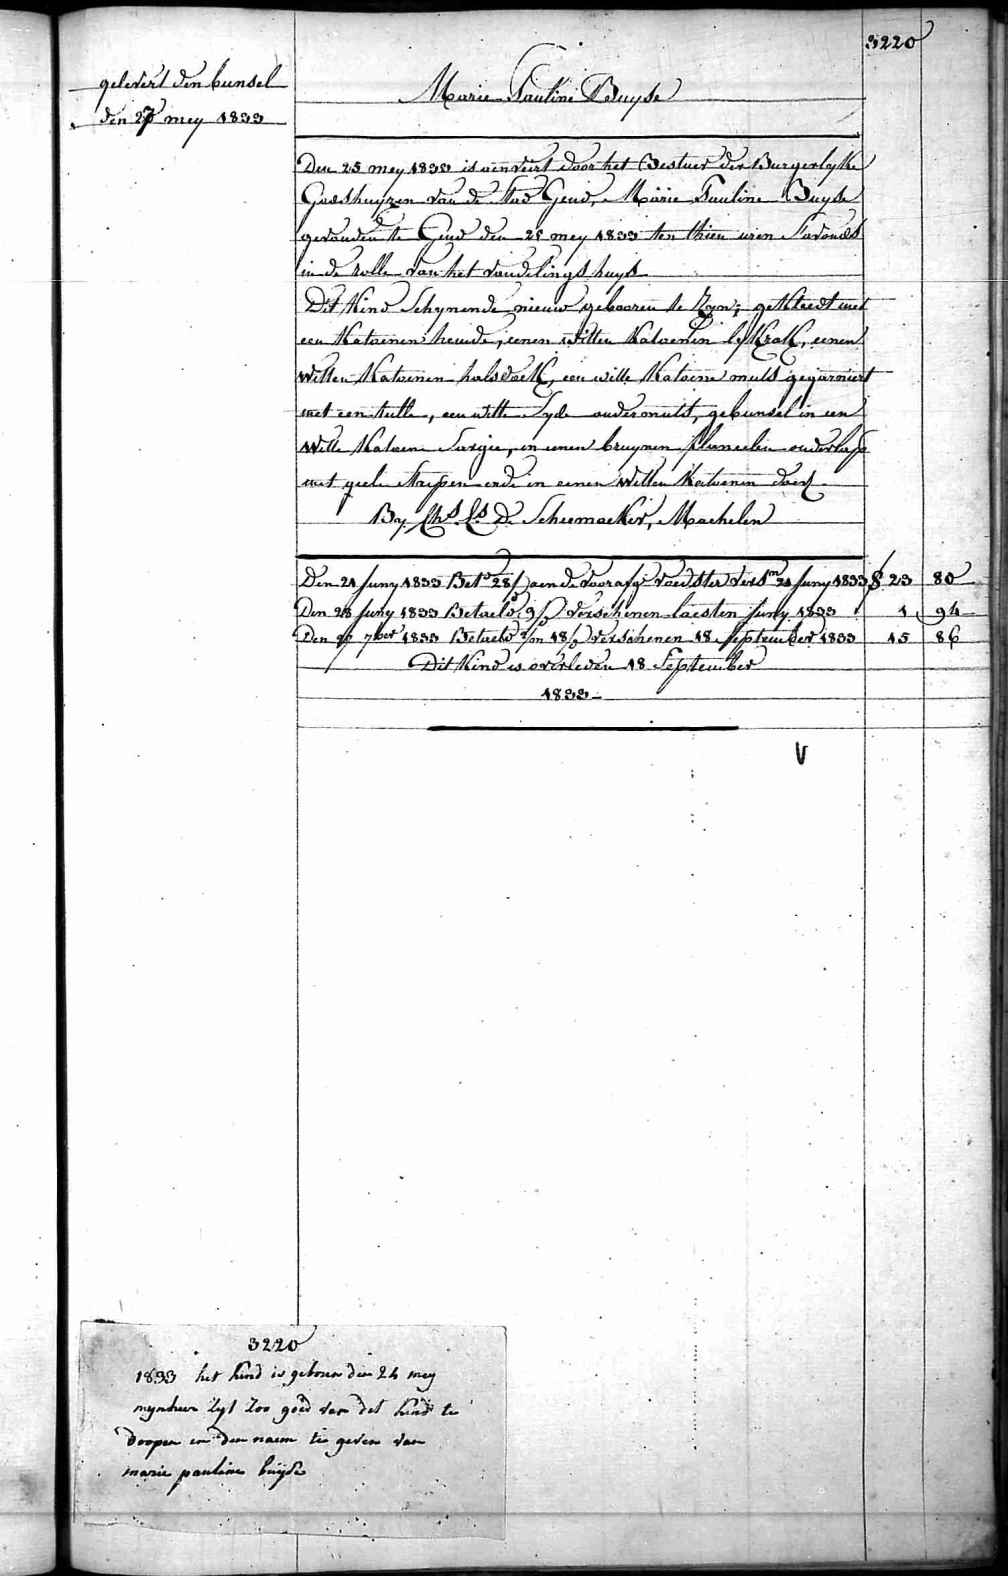 3220
gelevert den bunsel
den 27 mey 1833
Marie Pauline Buyse
Den 25 mey 1833 is aenveirt door het Bestuer der Burgerlyke
Godshuyzen van de stad Gend, Marie Pauline Buyse
gevonden te Gend den 25 mey 1833 ten thien uren s'avonds
in de rolle van het vondelingshuys
Dit Kind Schynende nieuw gebooren te Zyn; gekleedt met
een Katoenen hemde, eenen witten Katoenen lyfkrak, eenen
witten Katoenen halsdoek, een witte Katoene muts gegarniert
met een tulle, een witte Syde ondermuts, gebunsel in een
witte Katoene Sargie, en eenen bruynen flaneelen onderlap
met geele strepen ende in eenen witten Katoenen doek
By Chs. Ls. De Scheemaeker, Machelen
Den 21 Juny 1833 Bet.d 28/ aen de voorafge voedster vers.n 21 Juny 1833 23 80
Den 28 Juny 1833 Betaeld 9/ verschenen laesten Juny 1833 1 94
Den 7ber 1833 Betaeld 2/m 18/ verschenen 18 September 1833 15 86
Dit Kind is overleden 18 September
1833
V
3220
1833 het kind is geboren den 24 mey
mynheer Zyt Zoo goed van det kind te
doopen en den naem te geven van
marie pauline buyse